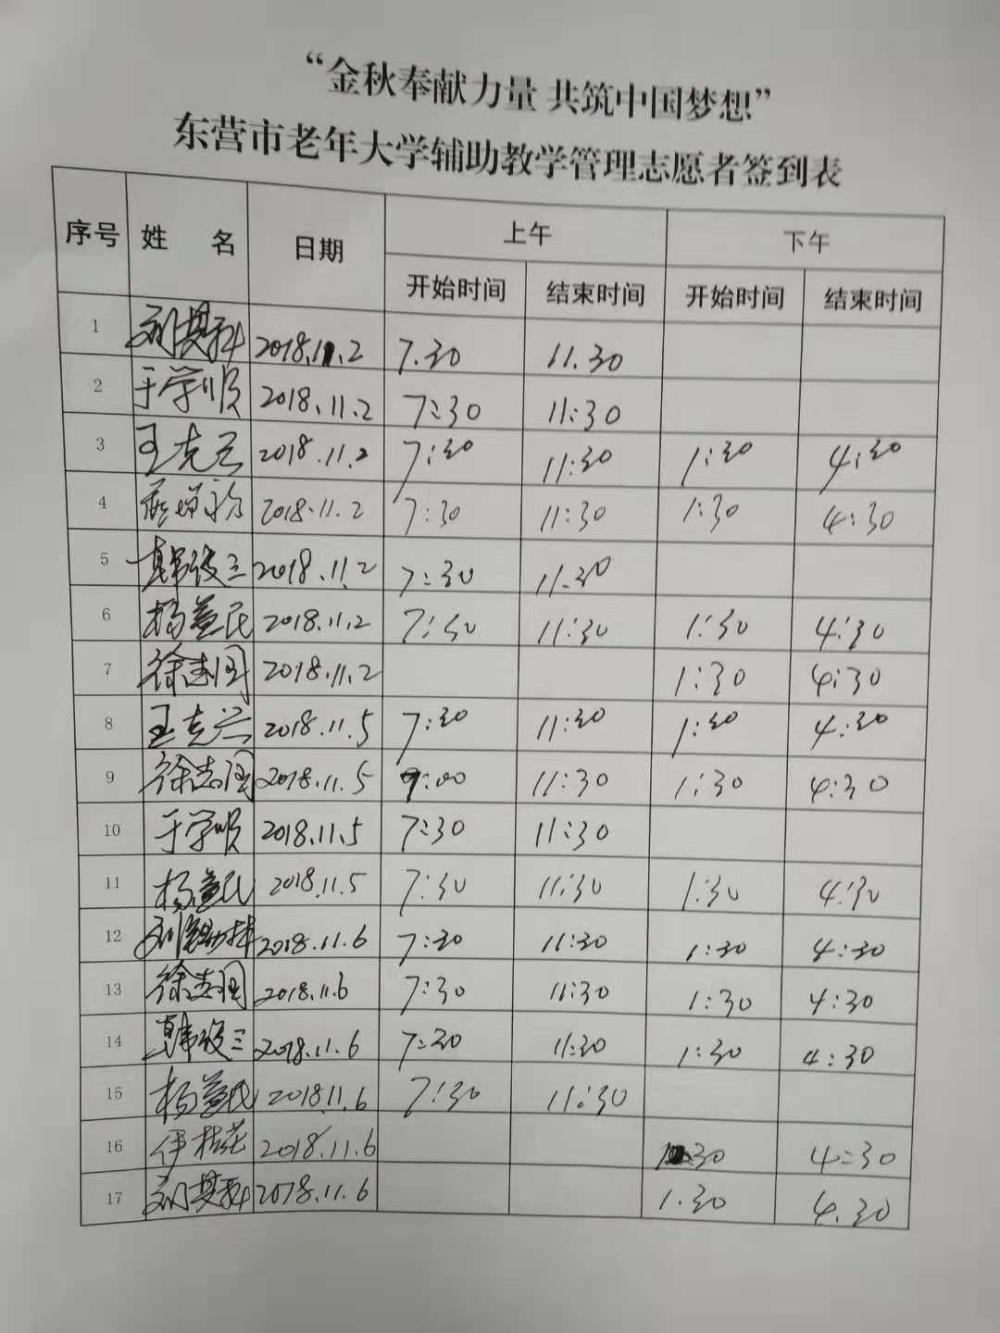 “金秋奉献力量 共筑中国梦想”
东营市老年大学辅助教学管理志愿者签到表
序号 姓 名 日期 上午 下午
开始时间 结束时间 开始时间 结束时间
1 刘其科 2018.11.2 7.30 11.30
2 于学顺 2018.11.2 7:30 11:30
3 王克兴 2018.11.2 7:30 11:30 1:30 4:30
4 2018.11.2 7:30 11:30 1:30 4:30
5 韩俊三 2018.11.2 7:30 11.30
6 杨益民 2018.11.2 7:30 11:30 1:30 4:30
7 徐志国 2018.11.2 1:30 4:30
8 王克兴 2018.11.5 7:30 11:30 1:30 4:30
9 徐志国 2018.11.5 9:00 11:30 1:30 4:30
10 于学顺 2018.11.5 7:30 11:30
11 杨益民 2018.11.5 7:30 11:30 1:30 4:30
12 2018.11.6 7:30 11:30 1:30 4:30
13 徐志国 2018.11.6 7:30 11:30 1:30 4:30
14 韩俊三 2018.11.6 7:30 11:30 1:30 4:30
15 杨益民 2018.11.6 7:30 11:30
16 伊桂花 2018.11.6 30 4:30
17 刘其科 2018.11.6 1.30 4.30